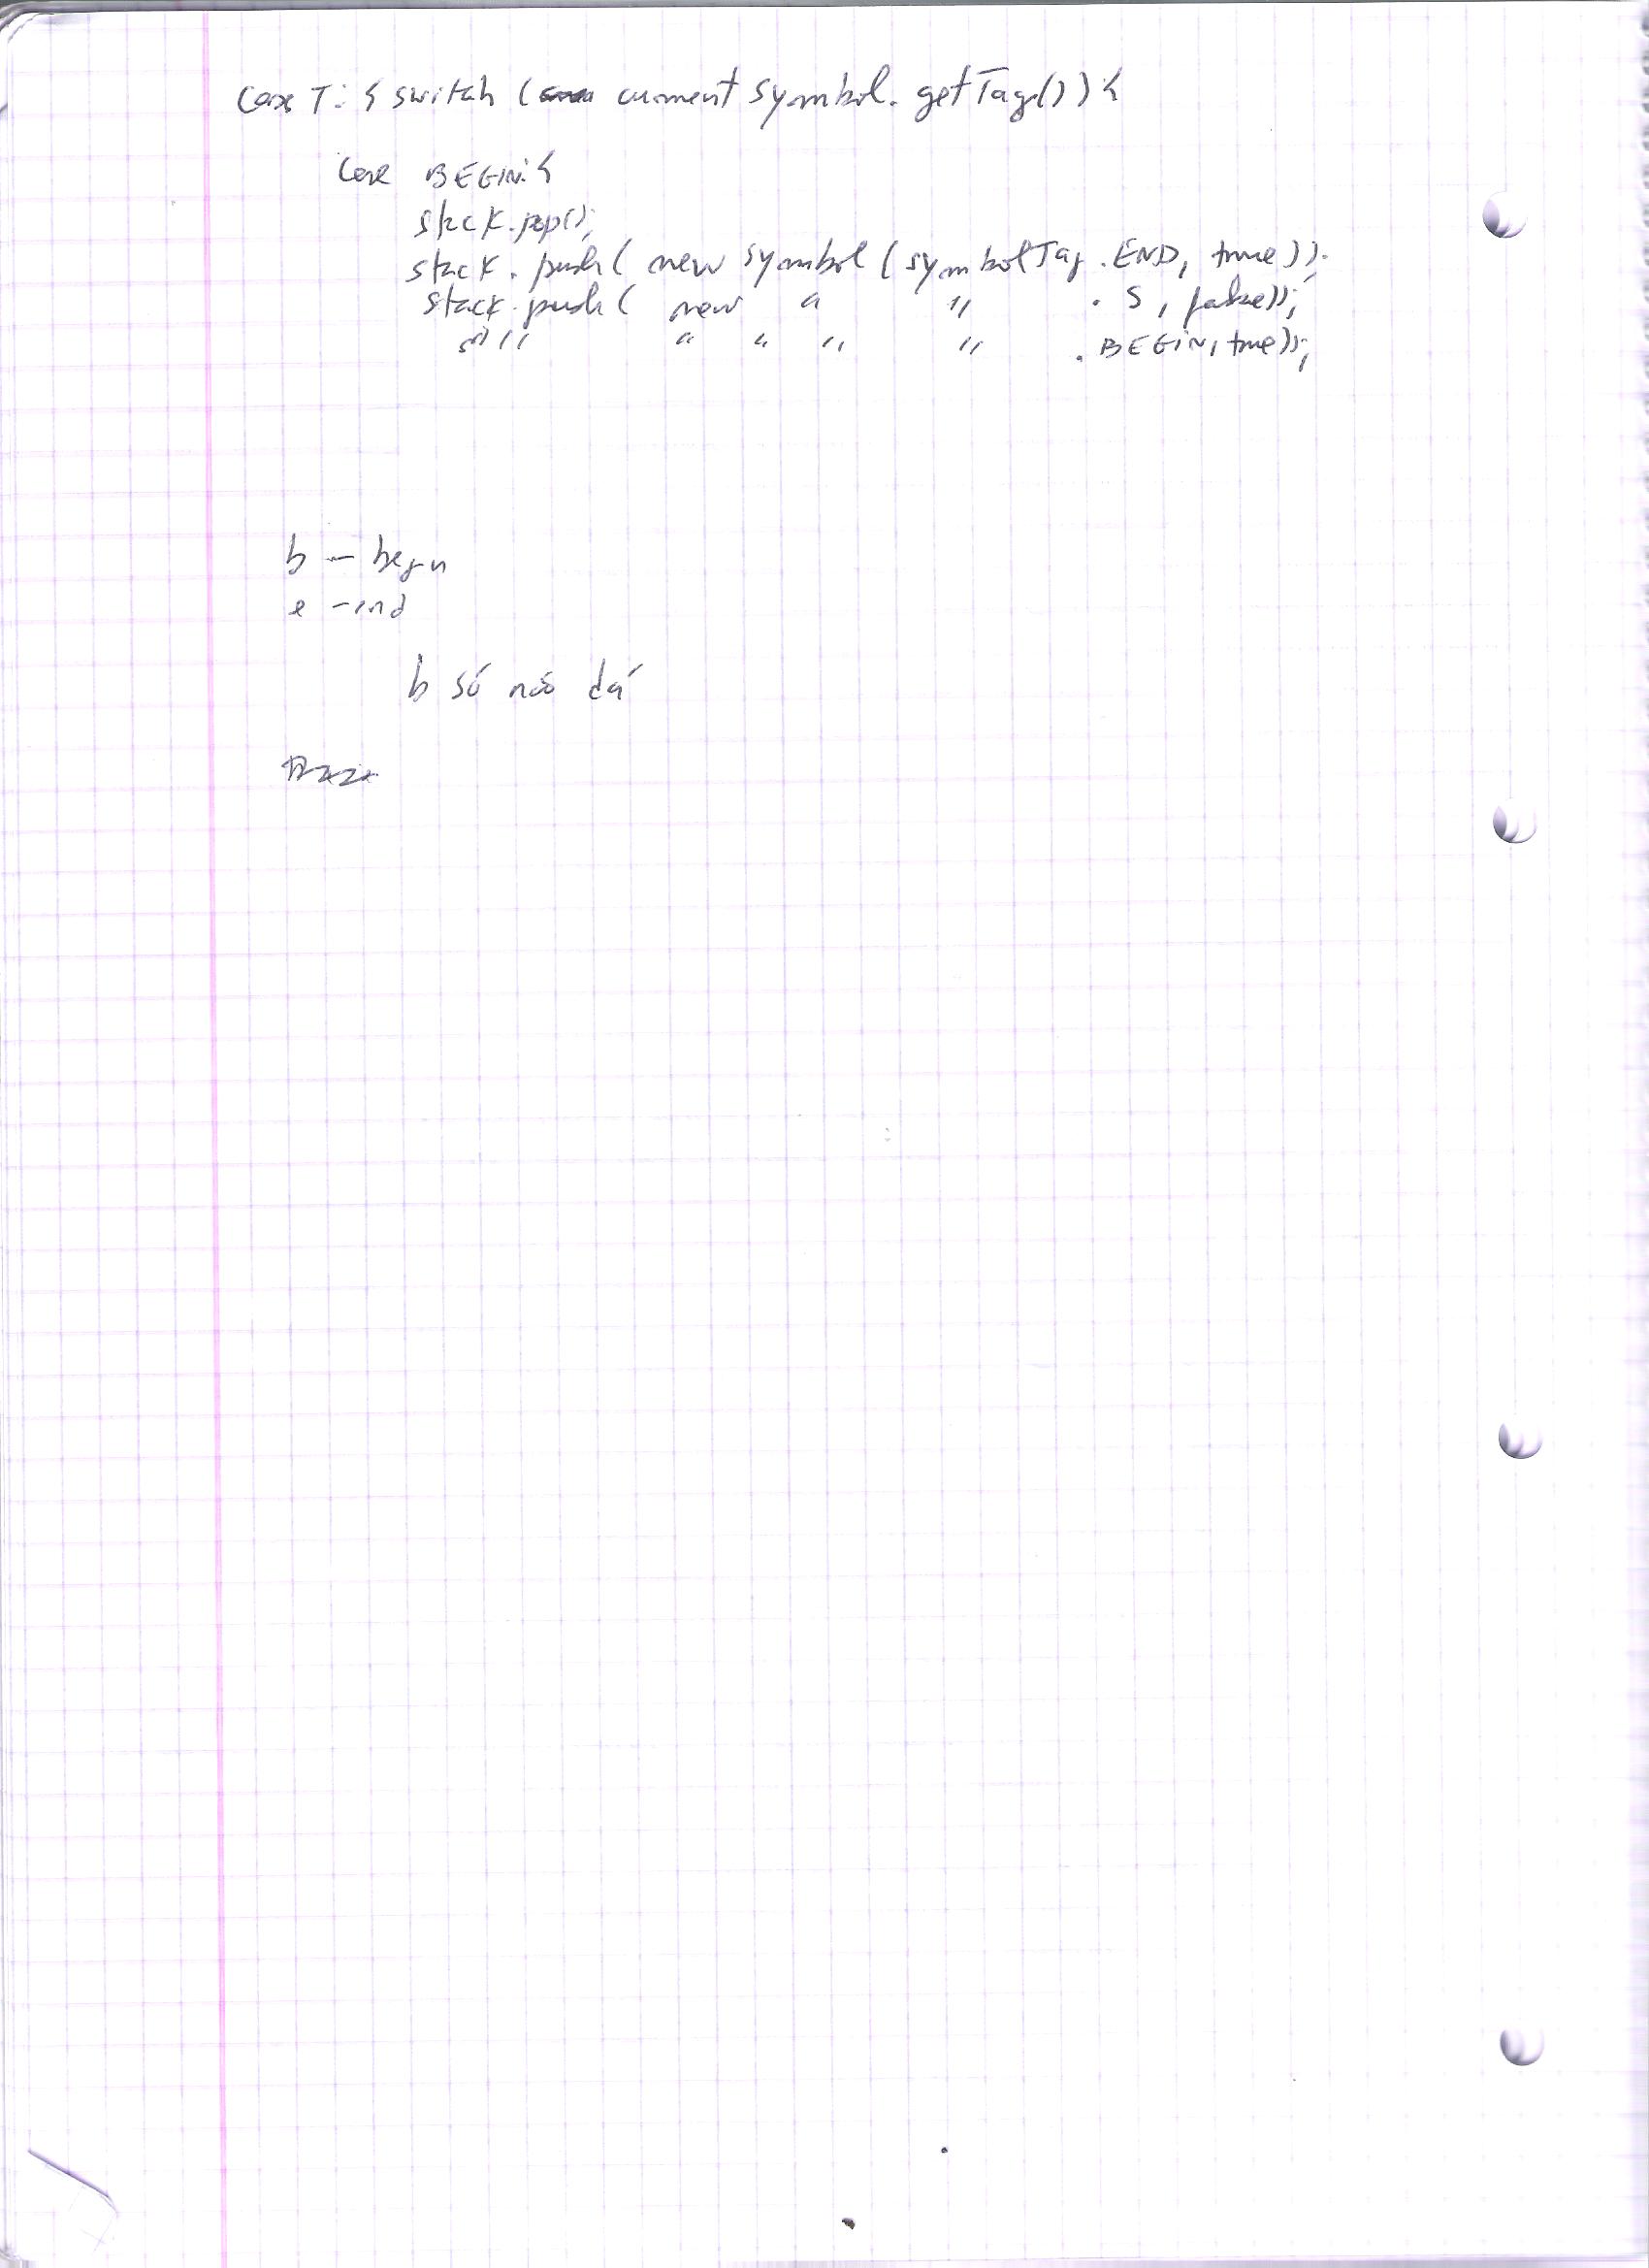 case T: { switch ( current symbol. getTag()) {
case BEGIN: {
stack.pop();
stack. push( new symbol (symbolTag .END, true));
stack.push( new " " . S, false));
" " " " " " . BEGIN, true));
b - begin
e - end
b só não dá